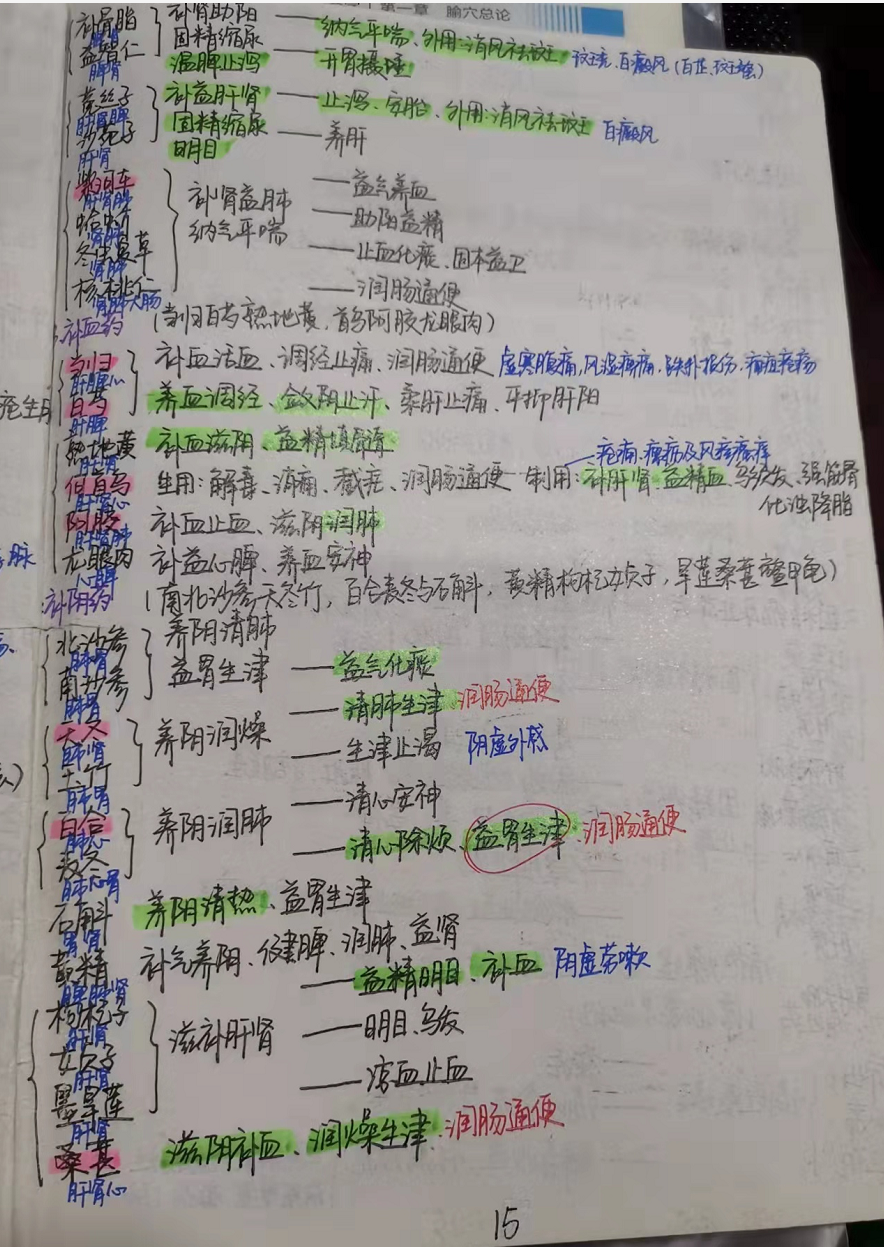 第一章 腧穴总论
补骨脂 补肾助阳 纳气平喘、外用:消风祛斑 斑秃,白癜风(白芷、斑蝥)
肾脾
益智仁 固精缩尿 开胃摄唾
脾肾 温脾止泻
菟丝子 补益肝肾 止泻、安胎、外用:消风祛斑 白癜风
肝肾脾
沙苑子 固精缩尿 养肝
肝肾 明目
紫河车 益气养血
肝肾肺 补肾益肺
蛤蚧 纳气平喘 助阳益精
肾肺
冬虫夏草 止血化痰、固本益卫
肾肺
核桃仁 润肠通便
肾肺大肠
补血药 (当归白芍熟地黄,首乌阿胶龙眼肉)
当归 补血活血、调经止痛、润肠通便 虚寒腹痛,风湿痹痛,跌扑损伤,痈疽疮疡
肝脾心
白芍 养血调经、敛阴止汗、柔肝止痛、平抑肝阳
肝脾
熟地黄 补血滋阴、益精填髓
肝肾 疮痈、瘰疬及风疹瘙痒
何首乌 生用:解毒、消痈、截疟、润肠通便 制用:补肝肾、益精血、乌须发、强筋骨
肝肾心 化浊降脂
阿胶 补血止血、滋阴润肺
肝肾肺
龙眼肉 补益心脾、养血安神
心脾
补阴药 (南北沙参天冬竹,百合麦冬与石斛,黄精枸杞女贞子,旱莲桑葚鳖甲龟)
北沙参 养阴清肺
肺胃
南沙参 益胃生津 益气化痰
肺胃
天冬 清肺生津 润肠通便
肺肾 养阴润燥
玉竹 生津止渴 阴虚外感
肺胃
百合 清心安神
肺心 养阴润肺
麦冬 清心除烦、益胃生津 润肠通便
肺心胃
石斛 养阴清热、益胃生津
胃肾
黄精 补气养阴、健脾、润肺、益肾
脾肺肾
枸杞子 益精明目、补血 阴虚劳嗽
肝肾 滋补肝肾
女贞子 明目、乌发
肝肾
墨旱莲 凉血止血
肝肾
桑葚 滋阴补血、润燥生津 润肠通便
肝肾心
15